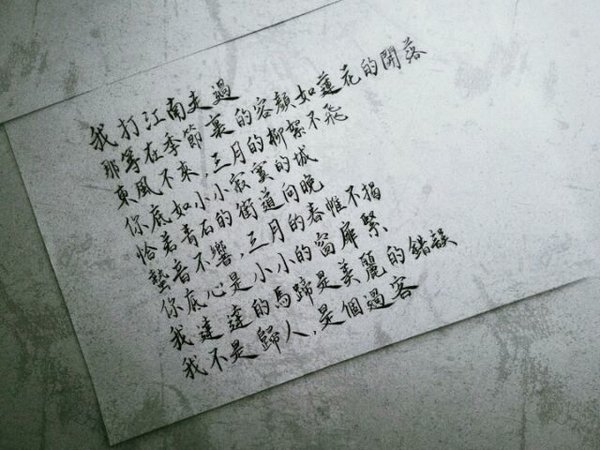 我打江南走過
那等在季節裏的容顏如蓮花的開落
東風不來,三月的柳絮不飛
你底如小小寂寞的城
恰若青石的街道向晚
跫音不響,三月的春帷不揭
你底心是小小的窗扉緊
我達達的馬蹄是美麗的錯誤
我不是歸人,是個過客